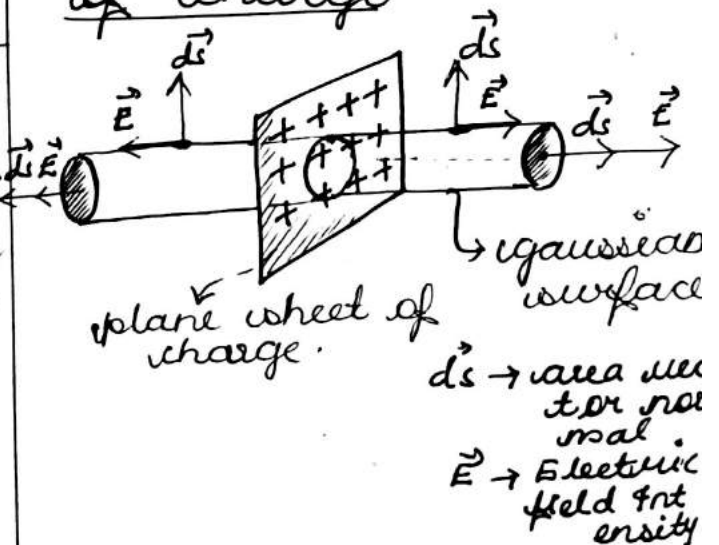 of charge
ds
ds
E
E
ds
E
ds E
gaussian
surface
plane sheet of
charge.
ds → area vec
tor nor
mal.
E → Electric
field Int
ensity